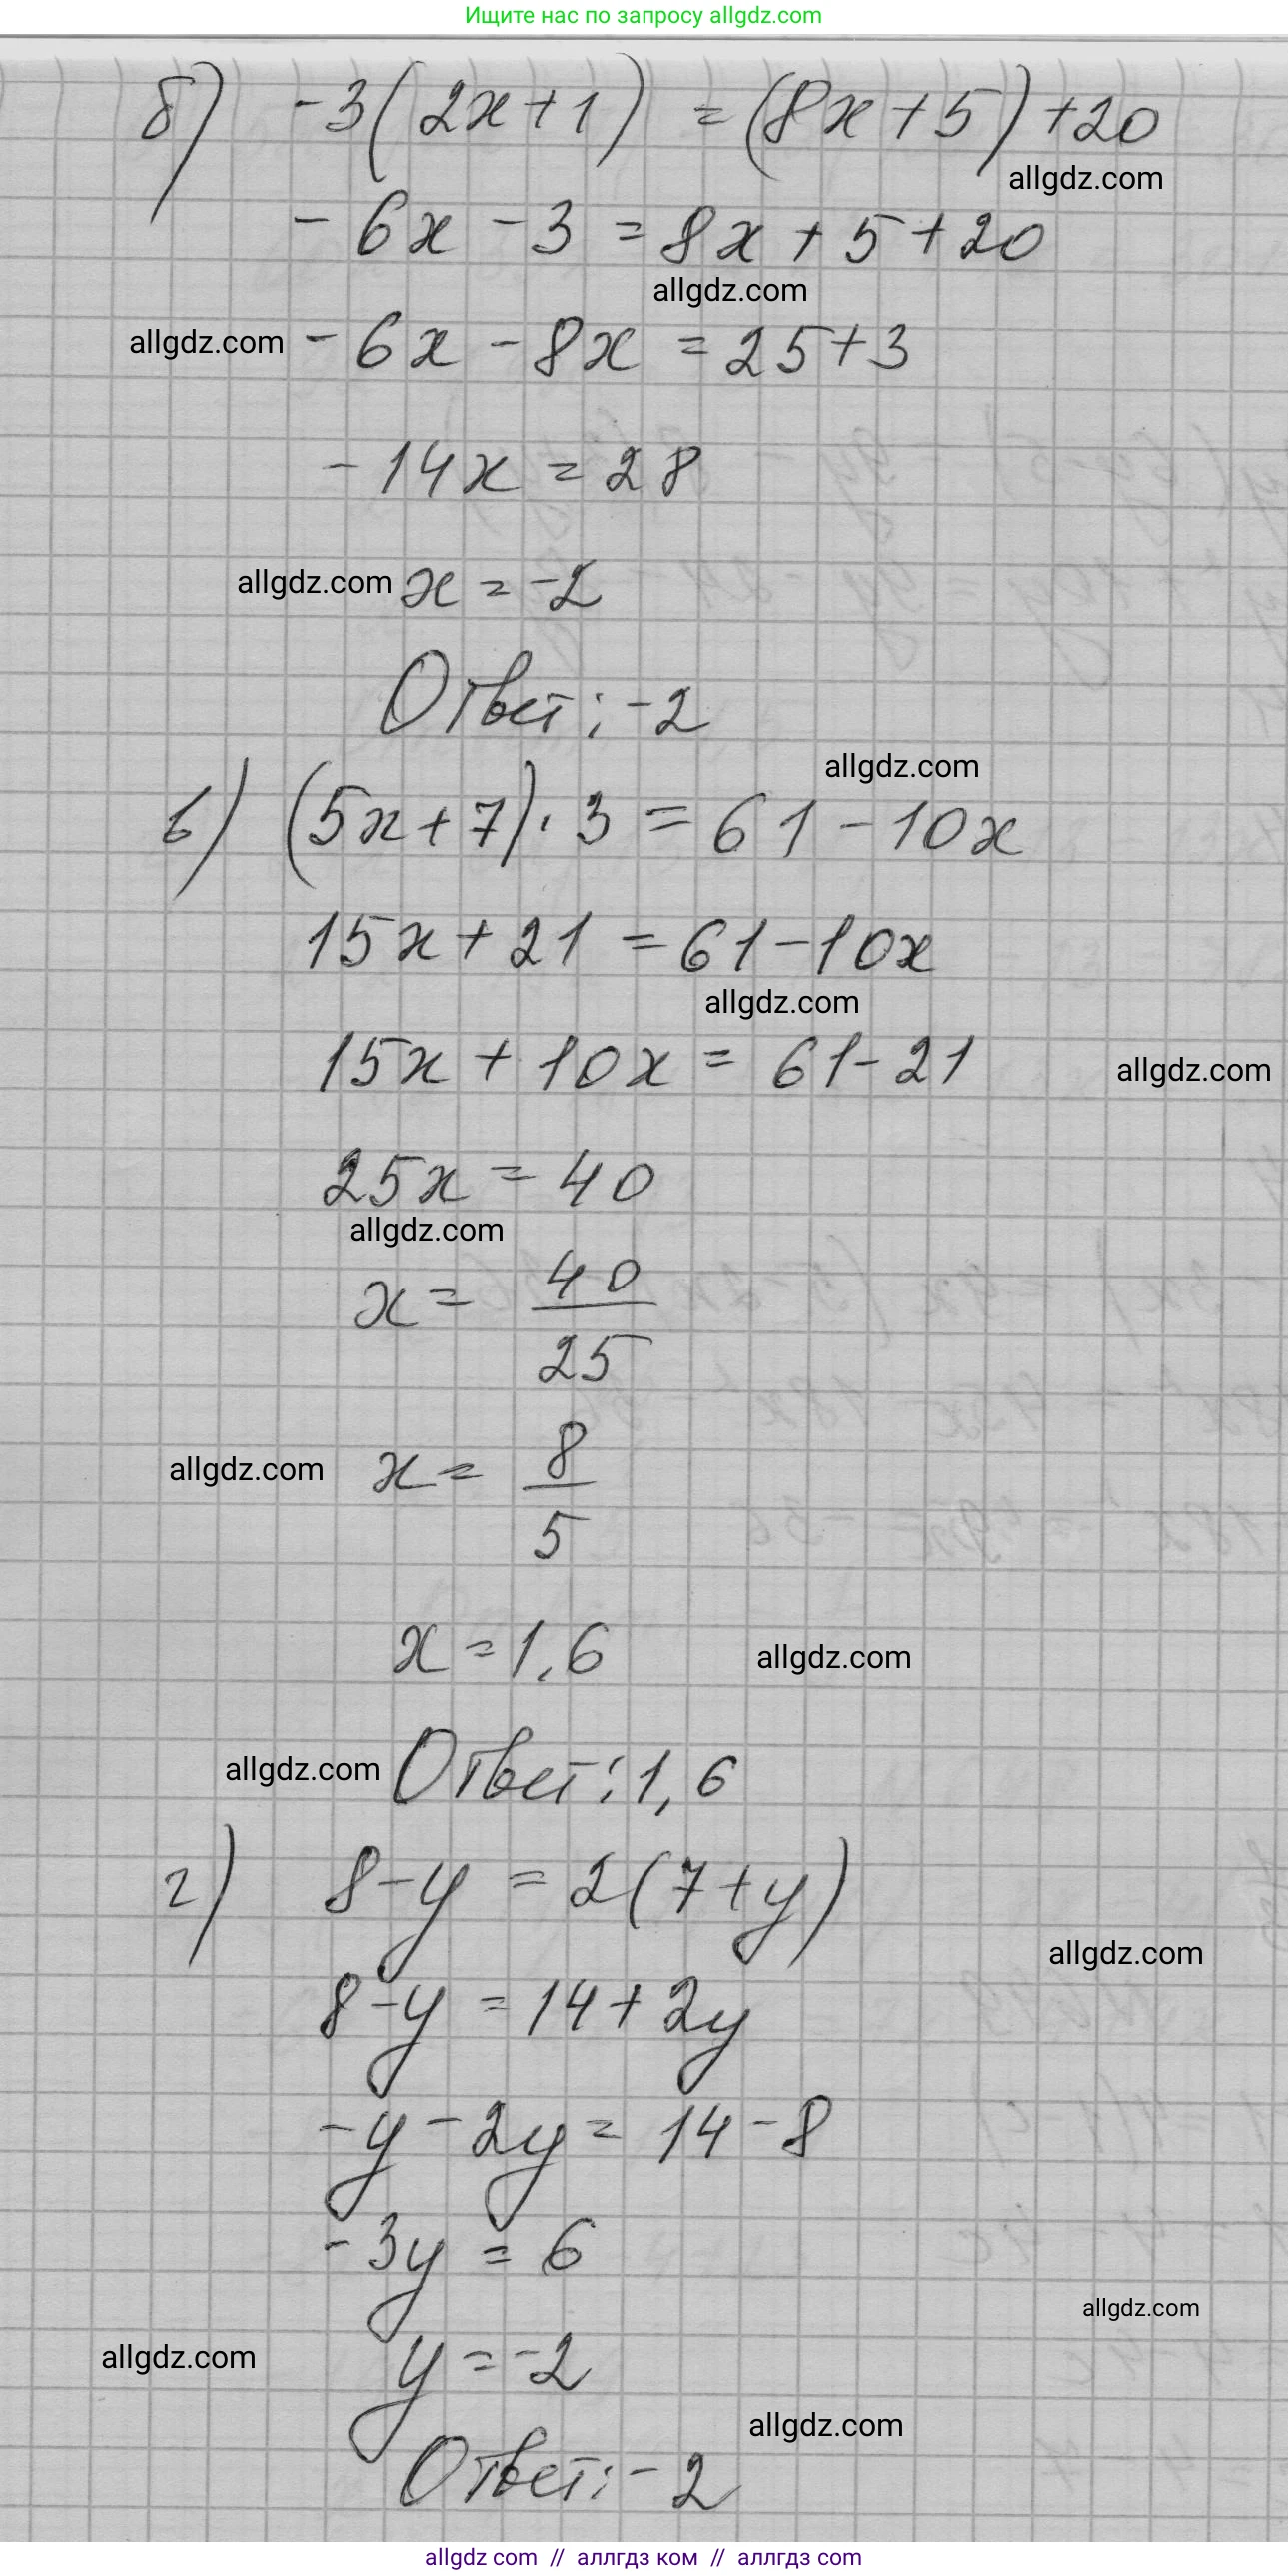 Ищите нас по запросу allgdz.com
б) -3(2x+1) = (8x+5)+20
allgdz.com
-6x-3=8x+5+20
allgdz.com
allgdz.com -6x-8x=25+3
-14x=28
allgdz.com x=-2
Ответ: -2
allgdz.com
в) (5x+7)·3=61-10x
15x+21=61-10x
allgdz.com
15x+10x=61-21 allgdz.com
25x=40
allgdz.com
x= 40/25
allgdz.com x= 8/5
x=1,6 allgdz.com
allgdz.com Ответ: 1,6
г) 8-y=2(7+y)
allgdz.com
8-y=14+2y
-y-2y=14-8
-3y=6
allgdz.com
allgdz.com y=-2
allgdz.com
Ответ: -2
allgdz com // аллгдз ком // аллгдз com